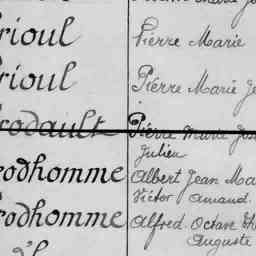 rioul Pierre Marie
rioul Pierre Marie Je
rodault Pierre Marie Jose
Julien
rodhomme Albert Jean Ma
Victor Amand.
rodhomme Alfred Octave Th
Auguste